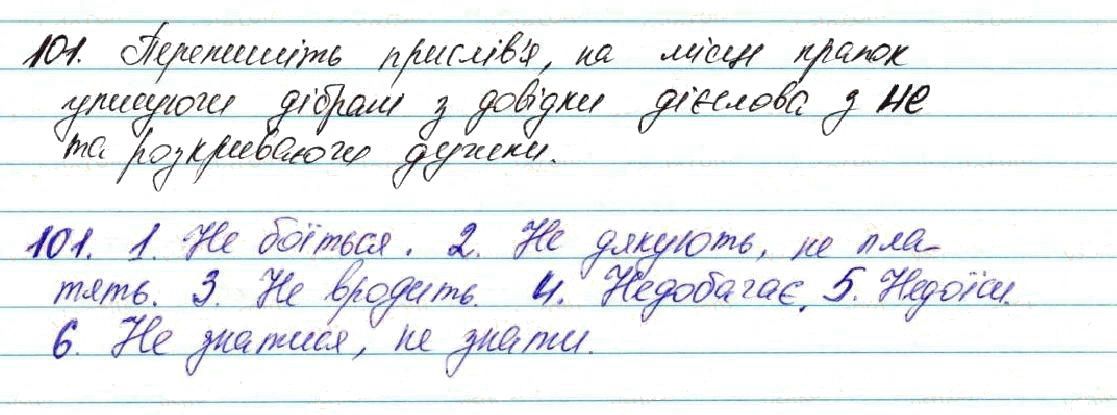 101. Перепишіть прислів'я, на місці крапок
уписуючи дібрані з довідки дієслова з не
та розкриваючи дужки.
101. 1. Не боїться. 2. Не дякують, не пла-
тять. 3. Не вродить. 4. Недобачає. 5. Недоїси.
6. Не знатися, не знати.